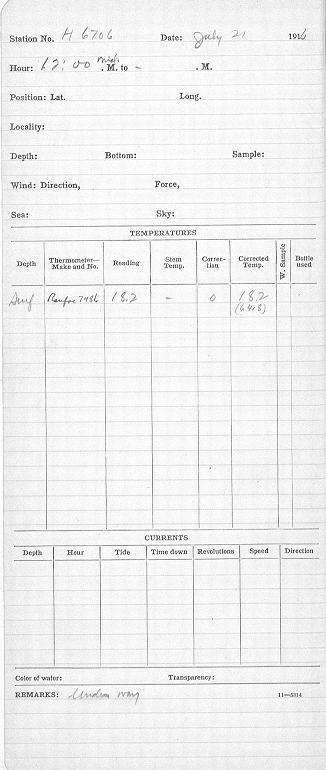 Station No. H 6706 Date: July 21 1916
Hour: 12:00 Mid. . M. to - . M.
Position: Lat. Long.
Locality:
Depth: Bottom: Sample:
Wind: Direction, Force,
Sea: Sky:
TEMPERATURES
Depth Thermometer—Make and No. Reading Stem Temp. Correction Corrected Temp. W. Sample Bottle used
Surf 18.2 - 0 18.2
(64.8)
CURRENTS
Depth Hour Tide Time down Revolutions Speed Direction
Color of water: Transparency:
REMARKS: Under way 11—5314